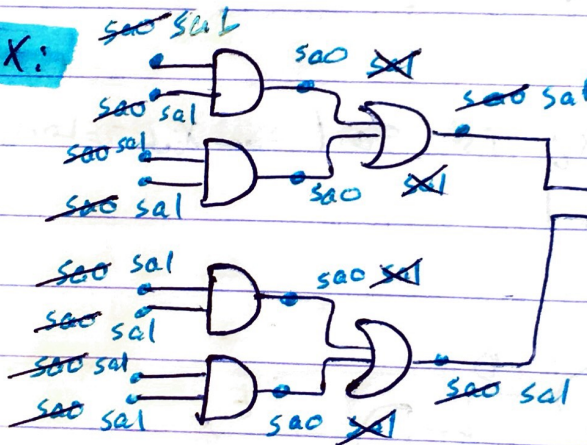 sao sal
X:
sao sal
sao sal
sao sal
sao sal
sao sal
sao sal
sao sal
sao sal
sao sal
sao sal
sao sal
sao sal
sao sal
sao sal